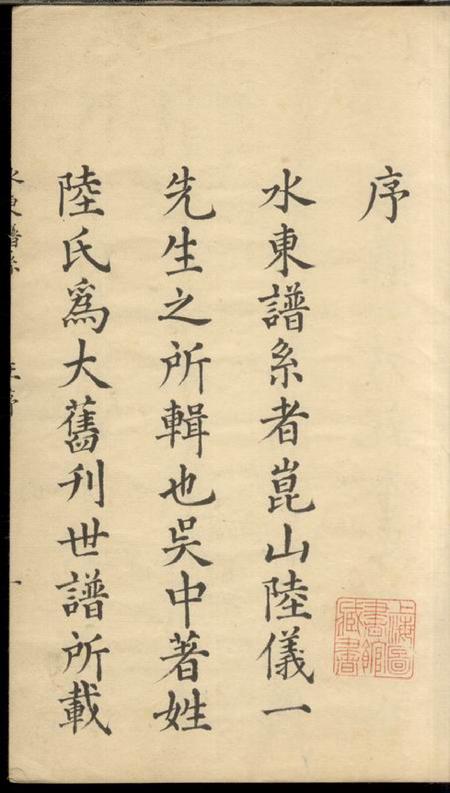 序
水東譜系者崑山陸儀一
先生之所輯也吴中著姓
陸氏爲大舊刊世譜所載
上海圖書館藏書
水東譜系
序
一